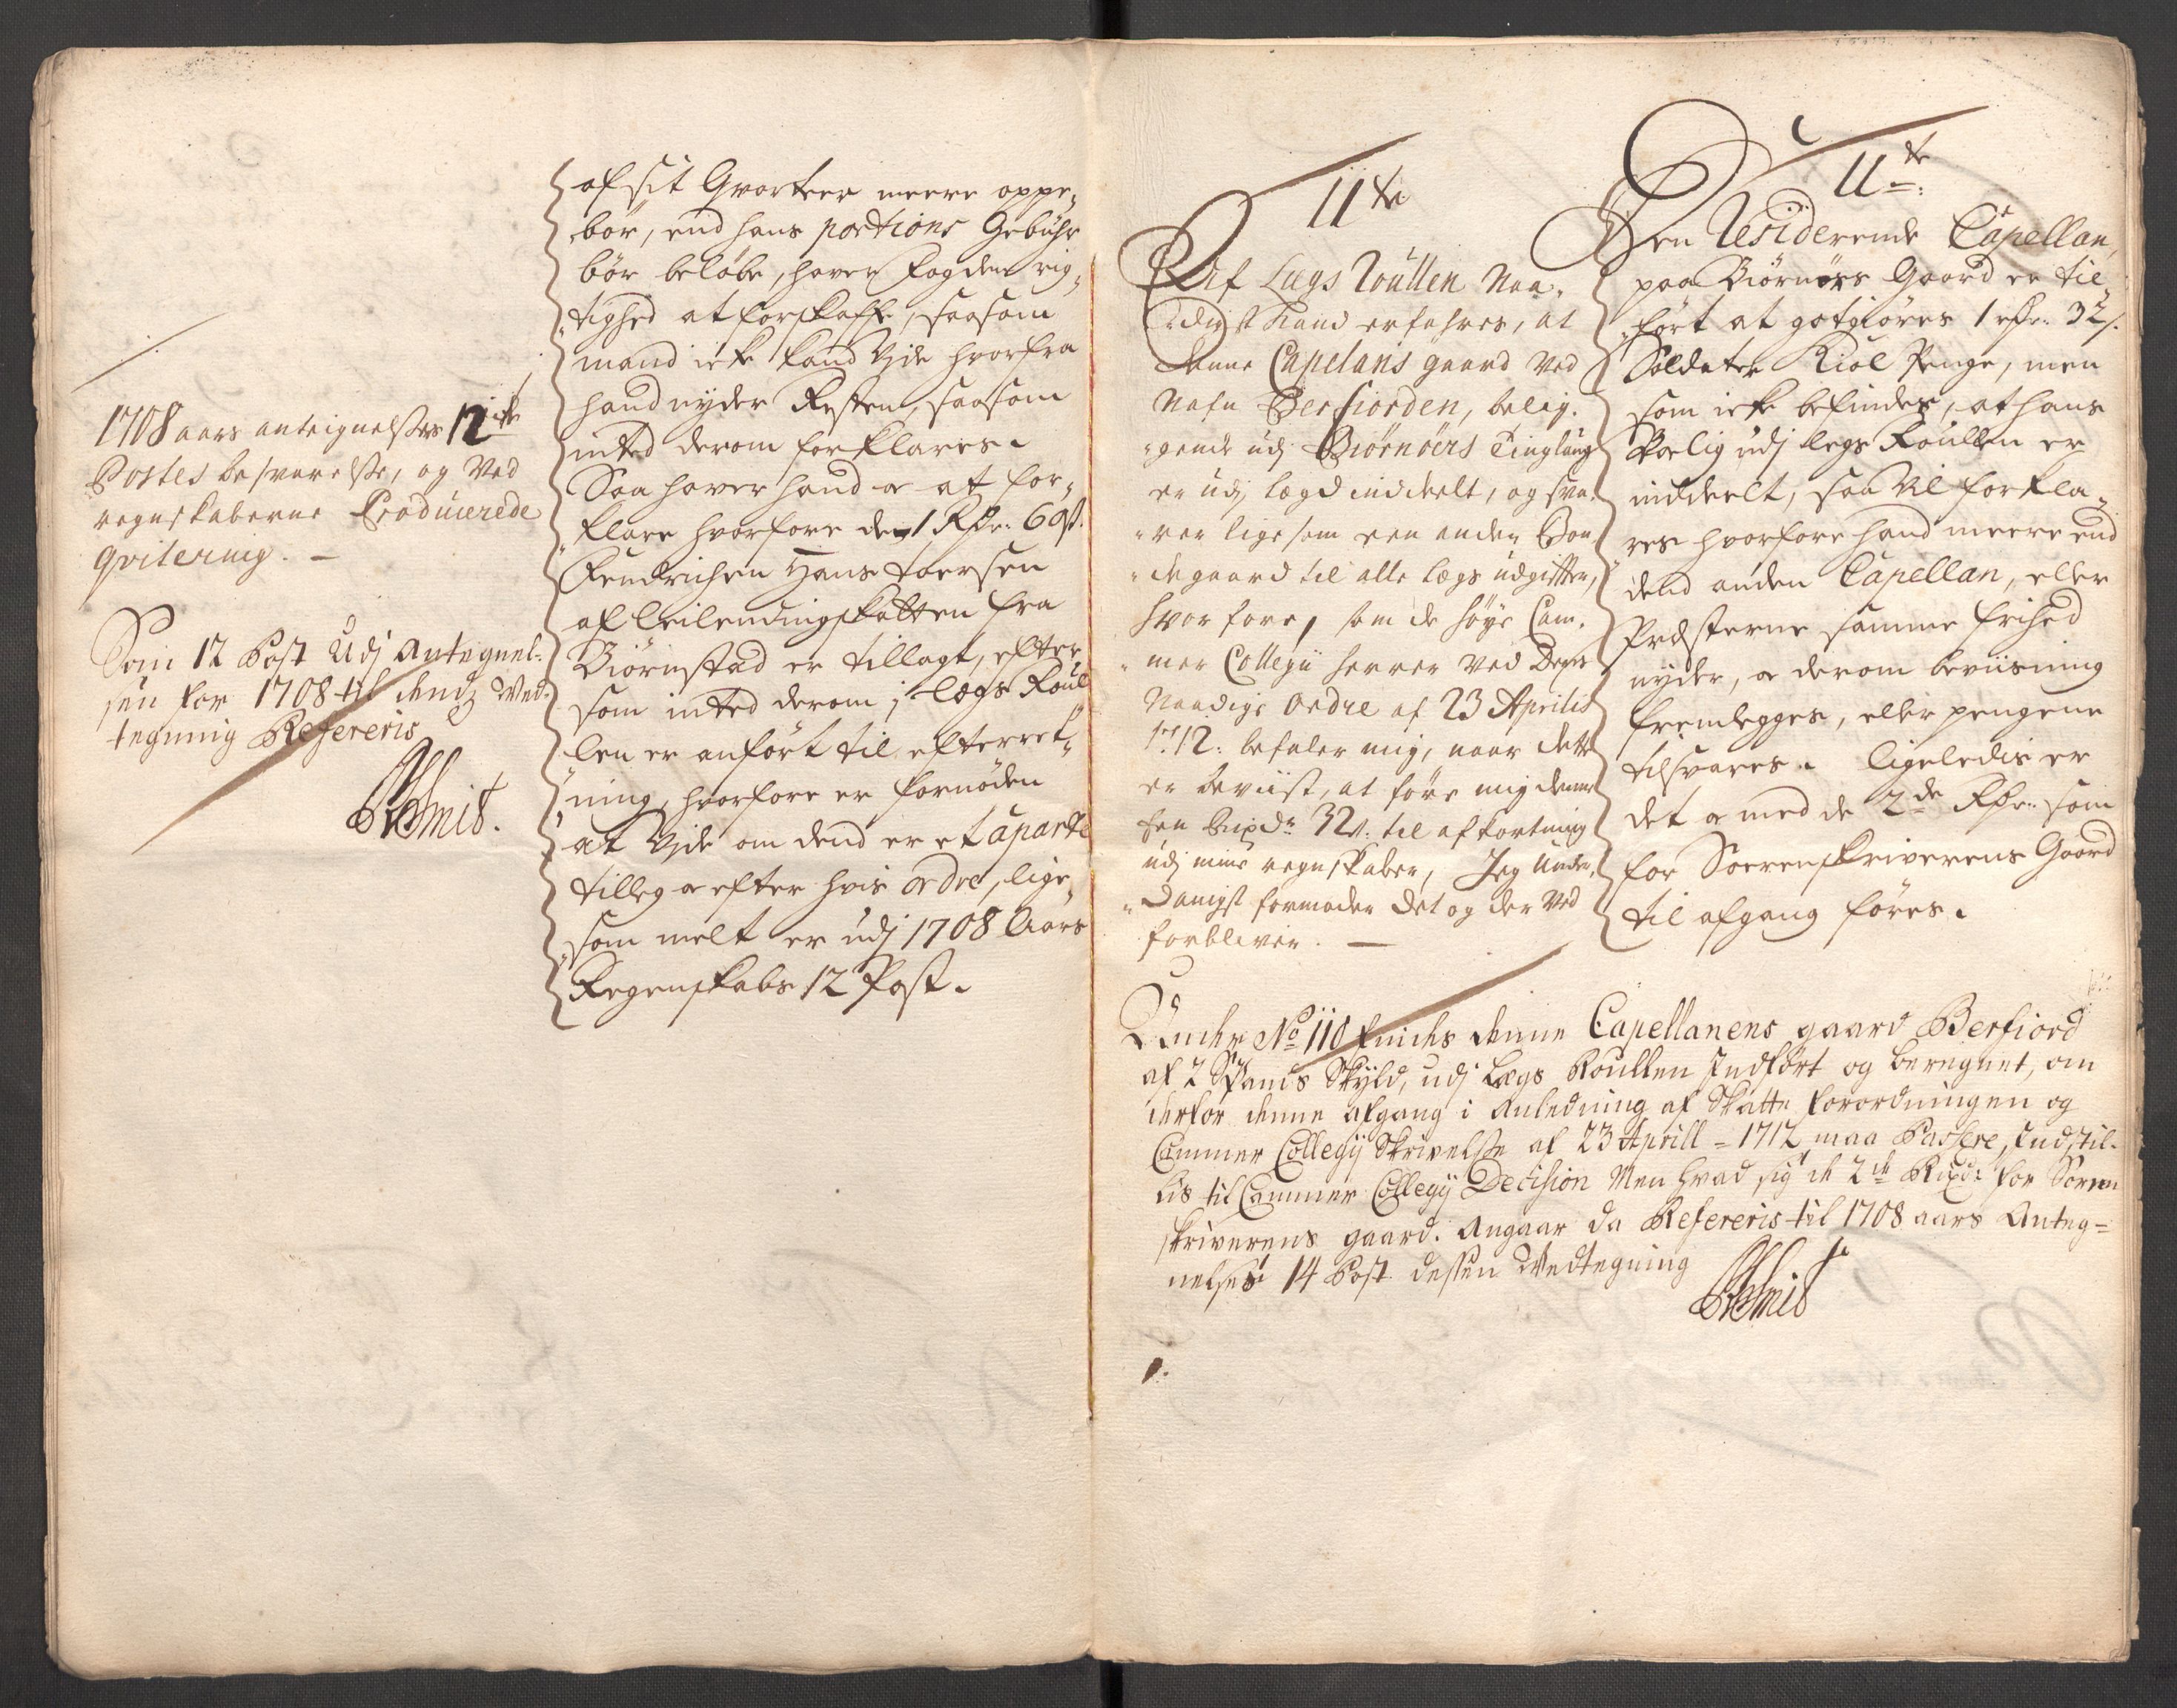 1708 aars anteignelses 12te
Postes besvarelse, og ved
regnskaberne Producerede
qvitering. —
Som 12 Post Udj Antegnel-
sen for 1708 til dends Ved-
tegning Refereris
Smit.
af sit Qvarteer meere oppe-
bör, end hans portions Gebühr
bör beløbe, haver fogden rig-
tighed at forskaffe, saasom
mand icke kand vide hvorfra
hand nyder Resten, saasom
inted derom forklares.
Saa haver hand og at for-
klare hvorfore de 1 Rdr: 60 s.
Fendrichen Hans Foersen
af leilendingskatten fra
Biörnstad er tillagt, efter
som inted derom j Legs Roul
len er anført til efterret-
ning, hvorfore er fornöden
at vide om dend er et aparte
tilleg og efter hvis ordre, lige
som melt er udj 1708 Aars
Regenskabs 12 Post.
11te
Af Lægs Roullen Naa-
digst kand erfahres, at
denne Capelans gaard ved
Nafn Berfiorden, belig-
gende udj Biørnøers Tinglaug
er udj Lægd inddeelt, og sva-
rer lige som een anden Bon-
degaard til alle Lægs udgifter,
hvorfore, som de høye Cam-
mer Collegii Herrer ved Deres
Naadige Ordre af 23 Aprilis
1712: befaler mig, naar dette
er beviist, at føre mig denne
Een Rixdr 32 s: til afkortning
udj mine regnskaber, Jeg Under-
danigst formoder det og der ved
forbliver. —
11te:
Den Residerende Capellan
paa Biørnørs Gaard er til-
fört at gotgiöres 1 rdr: 32 s.
Soldater Kiol Penge, men
som icke befindes, at hans
Boelig udj legs Roullen er
inddeelt, saa vil forkla-
res hvorfore hand meere end
dend anden Capellan, eller
Præsterne samme frihed
nyder, og derom beviisning
fremlegges, eller pengene
tilsvares. ligeledis er
det og med de 2de Rdr: som
for Sorenskriverens Gaard
til afgang føres.
Under No 110 findes denne Capellanens gaard Berfiord
af 2 Spands Skyld, udj Legs Roullen Indført og beregnet, om
derfor denne afgang i anledning af Skatte forordningen og
Cammer Collegij Skrivelse af 23 Aprill = 1712 maa Passere, Indstil-
lis til Cammer Collegij Decision Men hvad sig de 2de Rixdr for Soren
skriverens gaard. Angaar da Refereris til 1708 aars Anteg=
nelses 14 Post dessen Vedtegning
Smit